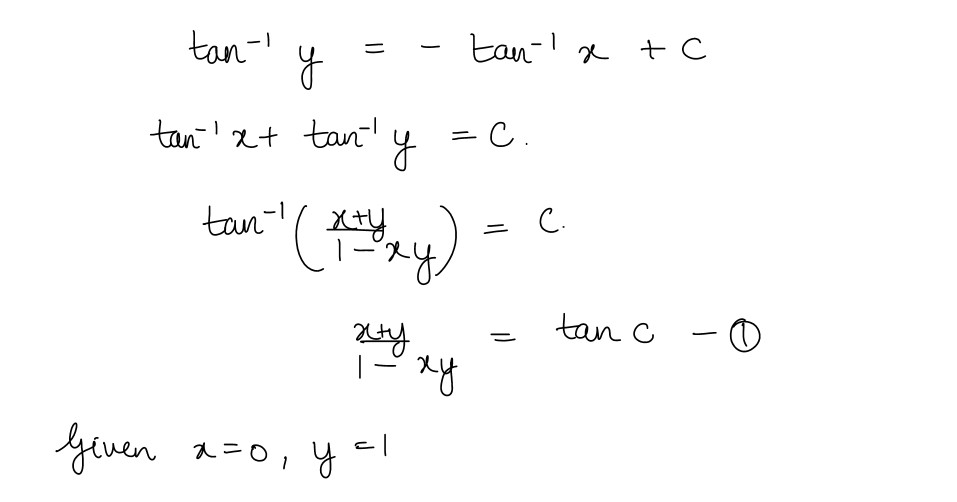 tan⁻¹ y = - tan⁻¹ x + C
tan⁻¹ x + tan⁻¹ y = C.
tan⁻¹ ( x+y / 1 - xy ) = C.
x+y / 1 - xy = tan C - ①
Given x = 0, y = 1